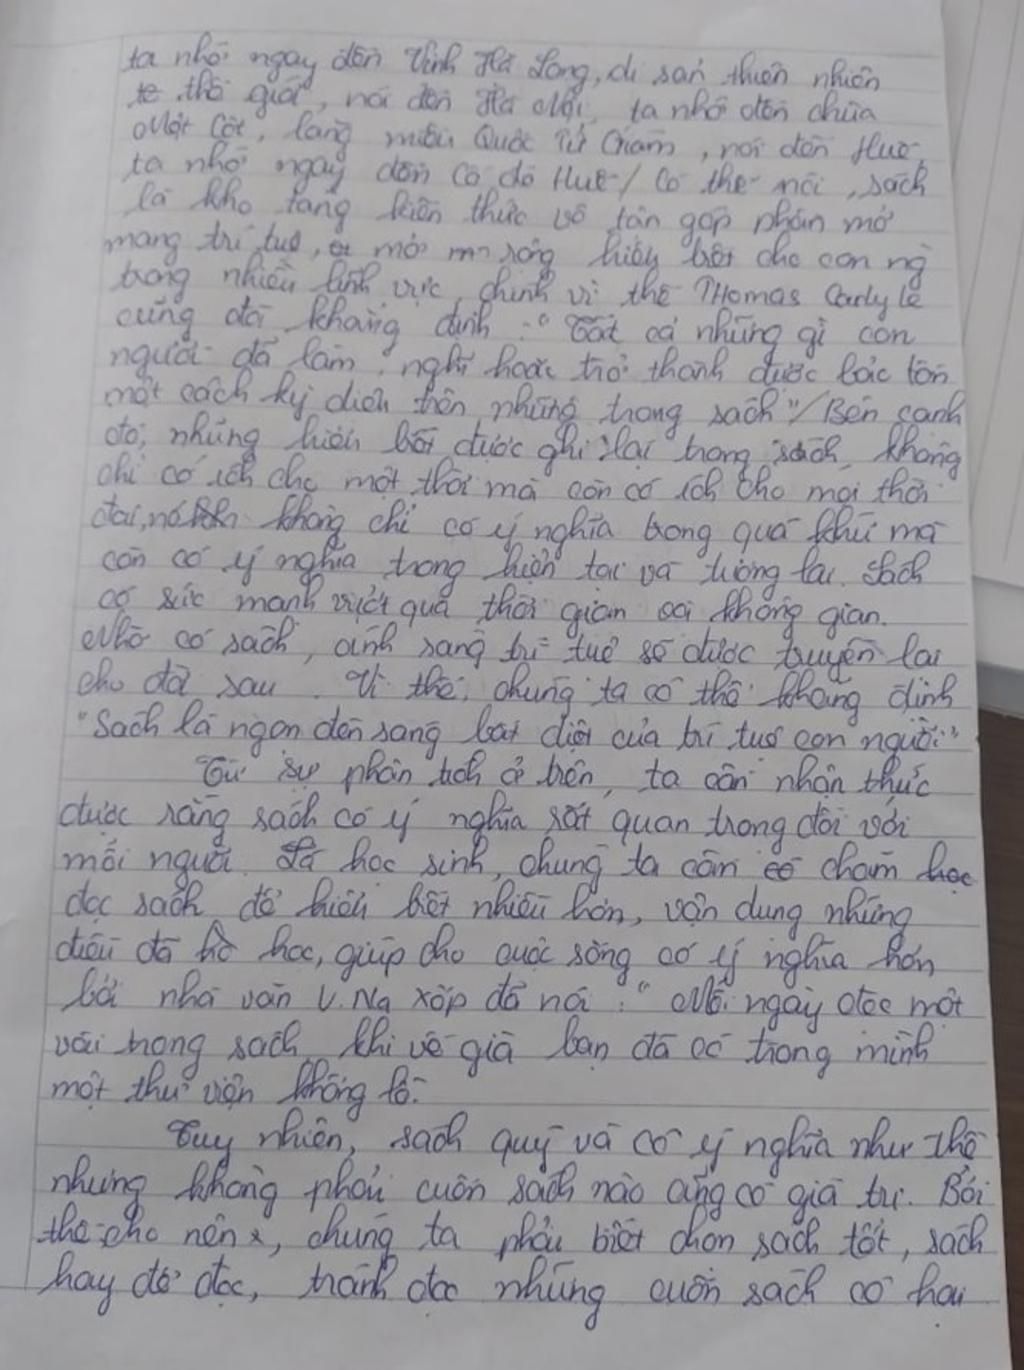 ta nhớ ngay đến Vịnh Hạ Long, di sản thiên nhiên
thế giới, nói đến Hà Nội, ta nhớ đến chùa
Một Cột, lăng miếu Quốc Tử Giám, nói đến Huế,
ta nhớ ngay đến Cố đô Huế/ Có thể nói, sách
là kho tàng kiến thức vô tận góp phần mở
mang trí tuệ, mở rộng hiểu biết cho con ng
trong nhiều lĩnh vực, chính vì thế THomas Carlyle
cũng đã khẳng định: "Tất cả những gì con
người đã làm, nghĩ hoặc trở thành được bảo tồn
một cách kỳ diệu trên những trang sách"/ Bên cạnh
đó, những hiểu biết được ghi lại trong sách, không
chỉ có ích cho một thời mà còn có ích cho mọi thời
đại, nó không chỉ có ý nghĩa trong quá khứ mà
còn có ý nghĩa trong hiện tại và tương lai. Sách
có sức mạnh vượt qua thời gian và không gian.
Nhờ có sách, ánh sáng trí tuệ sẽ được truyền lại
cho đời sau. Vì thế, chúng ta có thể khẳng định
"Sách là ngọn đèn sáng bất diệt của trí tuệ con người"
Từ sự phân tích ở trên, ta cần nhận thức
được rằng sách có ý nghĩa rất quan trọng đối với
mỗi người. Là học sinh, chúng ta cần chăm học
đọc sách để hiểu biết nhiều hơn, vận dụng những
điều đã học, giúp cho cuộc sống có ý nghĩa hơn
bởi nhà văn V. Na xốp đã nói: "Mỗi ngày đọc một
vài trang sách, khi về già bạn đã có trong mình
một thư viện khổng lồ.
Tuy nhiên, sách quý và có ý nghĩa như thế
nhưng không phải cuốn sách nào cũng có giá trị. Bởi
thế cho nên, chúng ta phải biết chọn sách tốt, sách
hay để đọc, tránh đọc những cuốn sách có hại